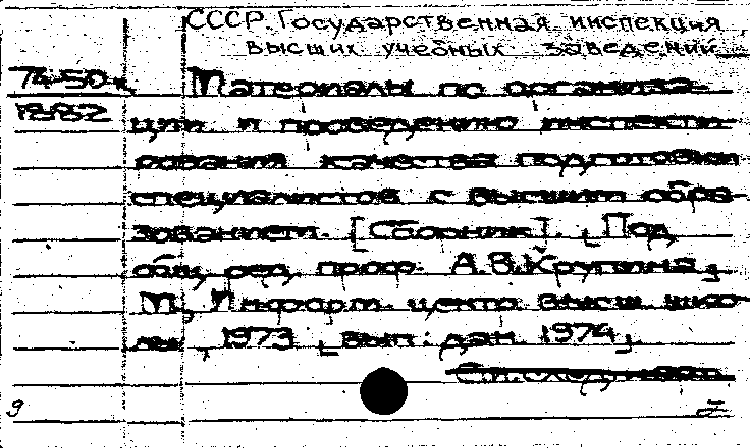 СССР. Государственная инспекция
высших учебных заведений.
74-50к Материалы по организа-
1882 ции и проведению инспекти-
рования качества подготовки
специалистов с высшим обра-
зованием. [Сборник]. [Под
общ. ред. проф. А.В. Крупина],
М., Информ. центр высш. шко-
лы, 1973 [вып. дан. 1974].
См. след.
9